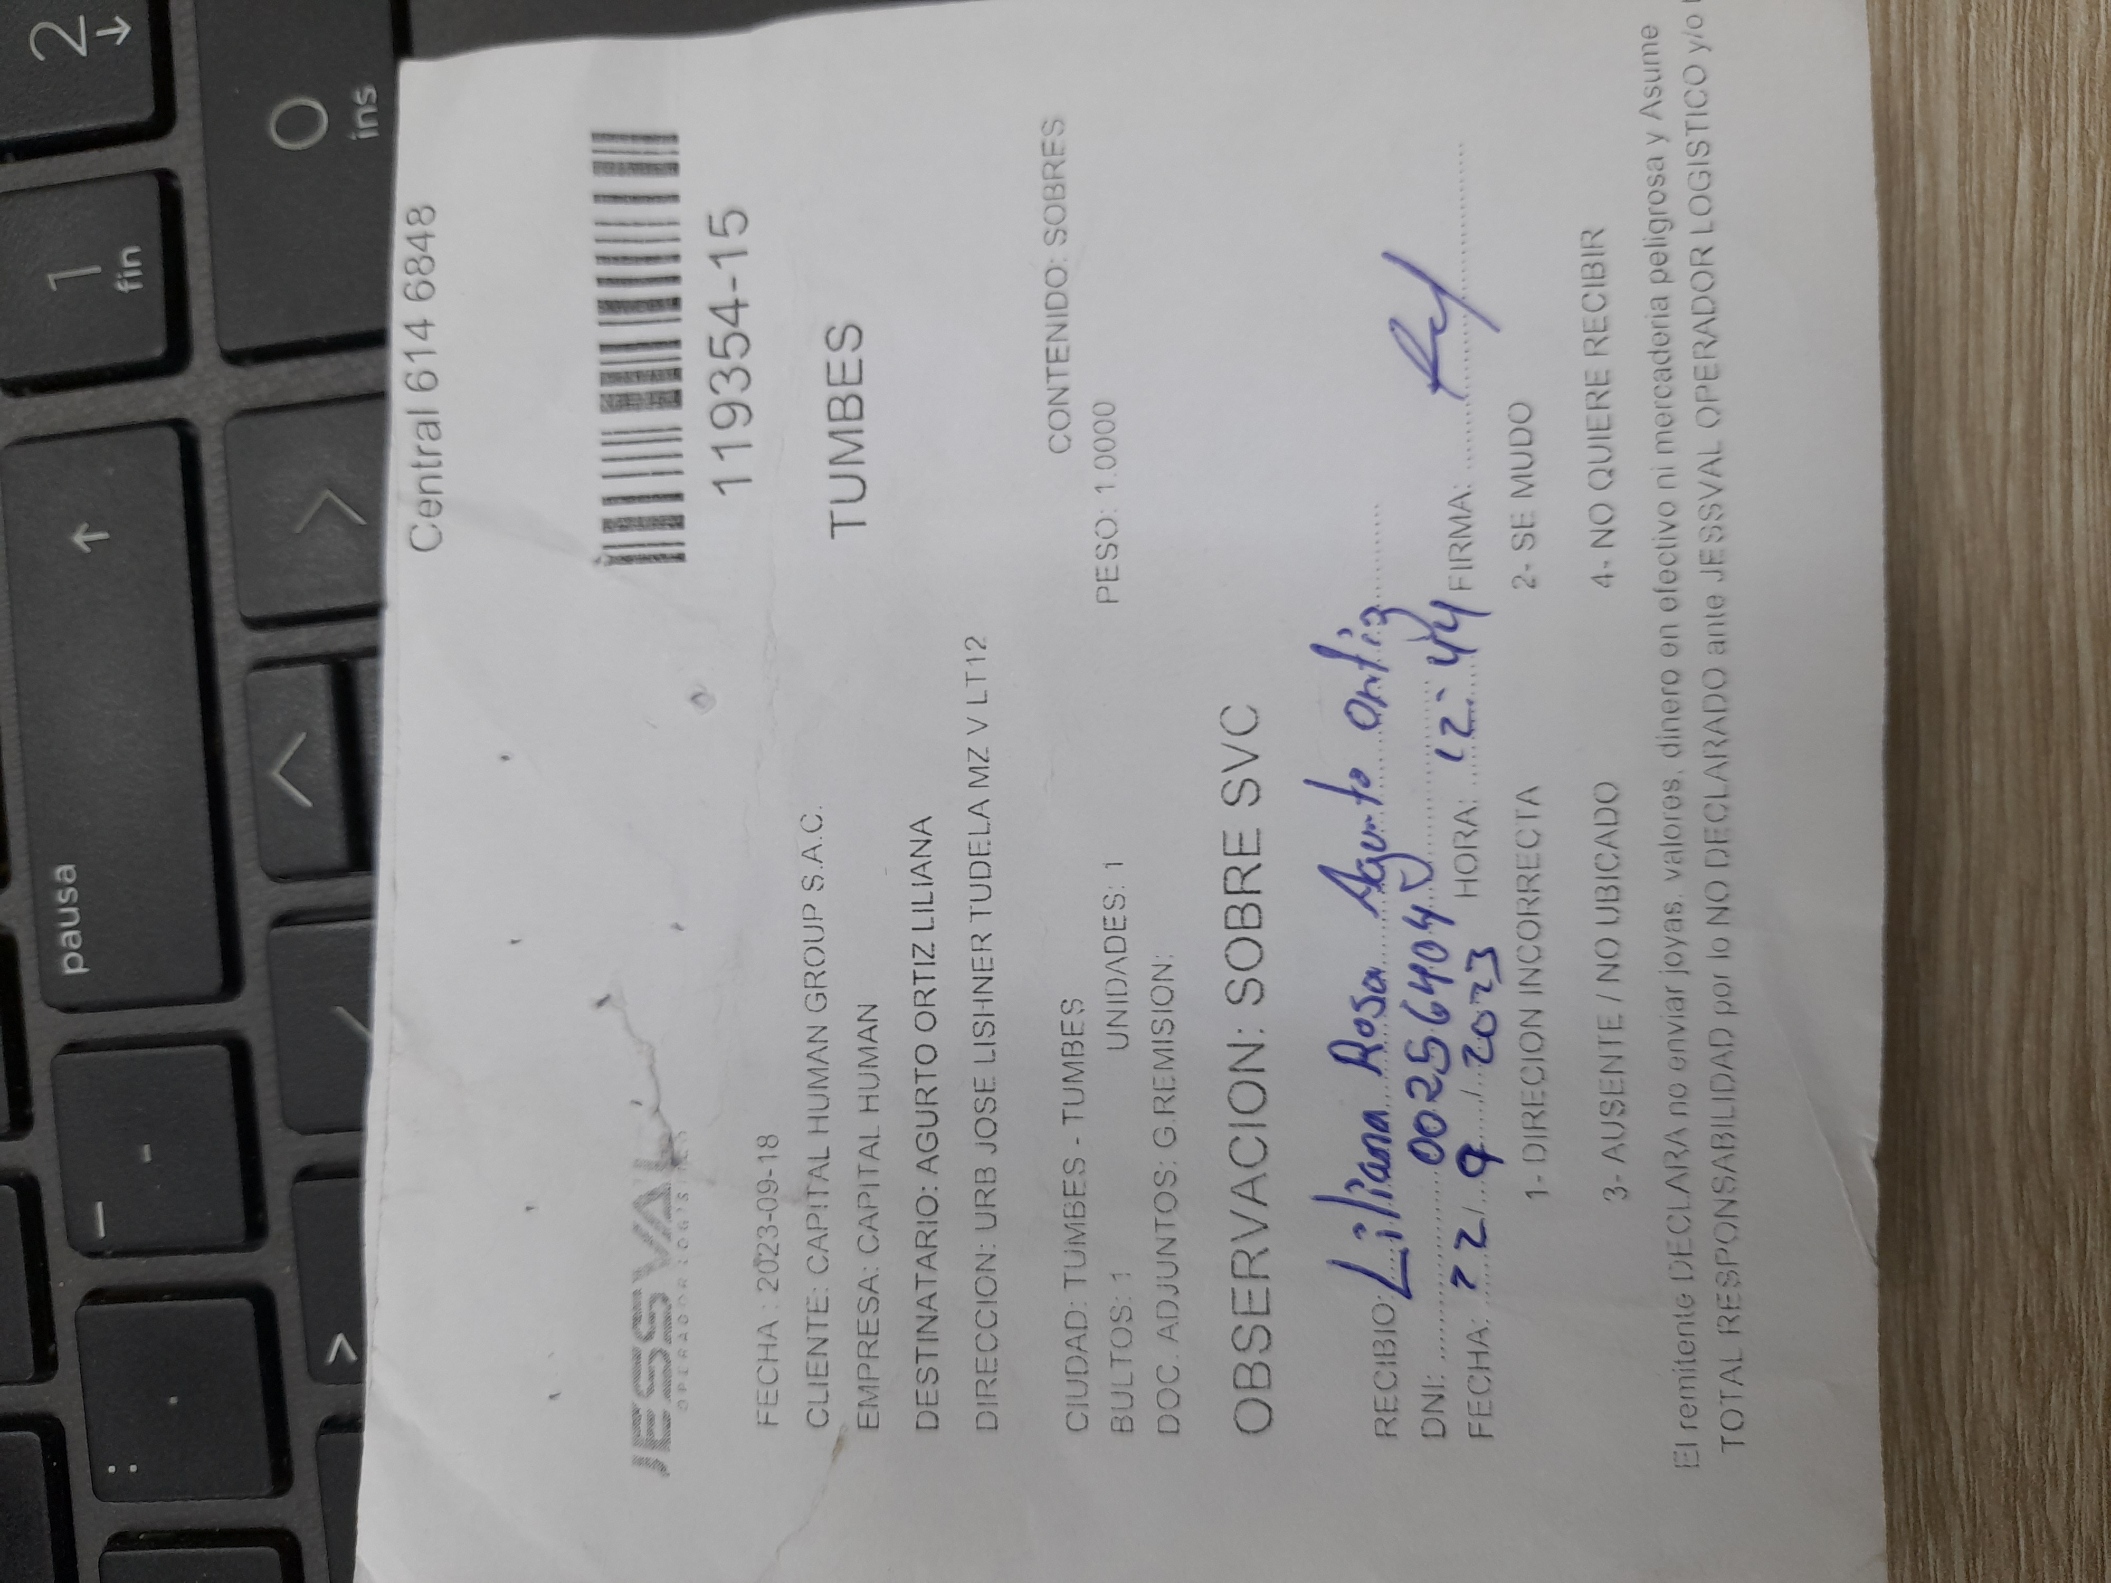 pausa
1
fin
2
0
ins
Central 614 6848
JESSVAL
OPERADOR LOGISTICO
119354-15
FECHA : 2023-09-18
CLIENTE: CAPITAL HUMAN GROUP S.A.C.
TUMBES
EMPRESA: CAPITAL HUMAN
DESTINATARIO: AGURTO ORTIZ LILIANA
DIRECCION: URB JOSE LISHNER TUDELA MZ V LT12
CIUDAD: TUMBES - TUMBES
CONTENIDO: SOBRES
BULTOS: 1 UNIDADES: 1 PESO: 1.0000
DOC. ADJUNTOS: G.REMISION:
OBSERVACION: SOBRE SVC
RECIBIO: Liliana Rosa Agurto Ortiz
DNI: 00256404
FECHA: 22/9/2023 HORA: 12:44 FIRMA:
1- DIRECION INCORRECTA 2- SE MUDO
3- AUSENTE / NO UBICADO 4- NO QUIERE RECIBIR
El remitente DECLARA no enviar joyas, valores, dinero en efectivo ni mercaderia peligrosa y Asume
TOTAL RESPONSABILIDAD por lo NO DECLARADO ante JESSVAL OPERADOR LOGISTICO y/o